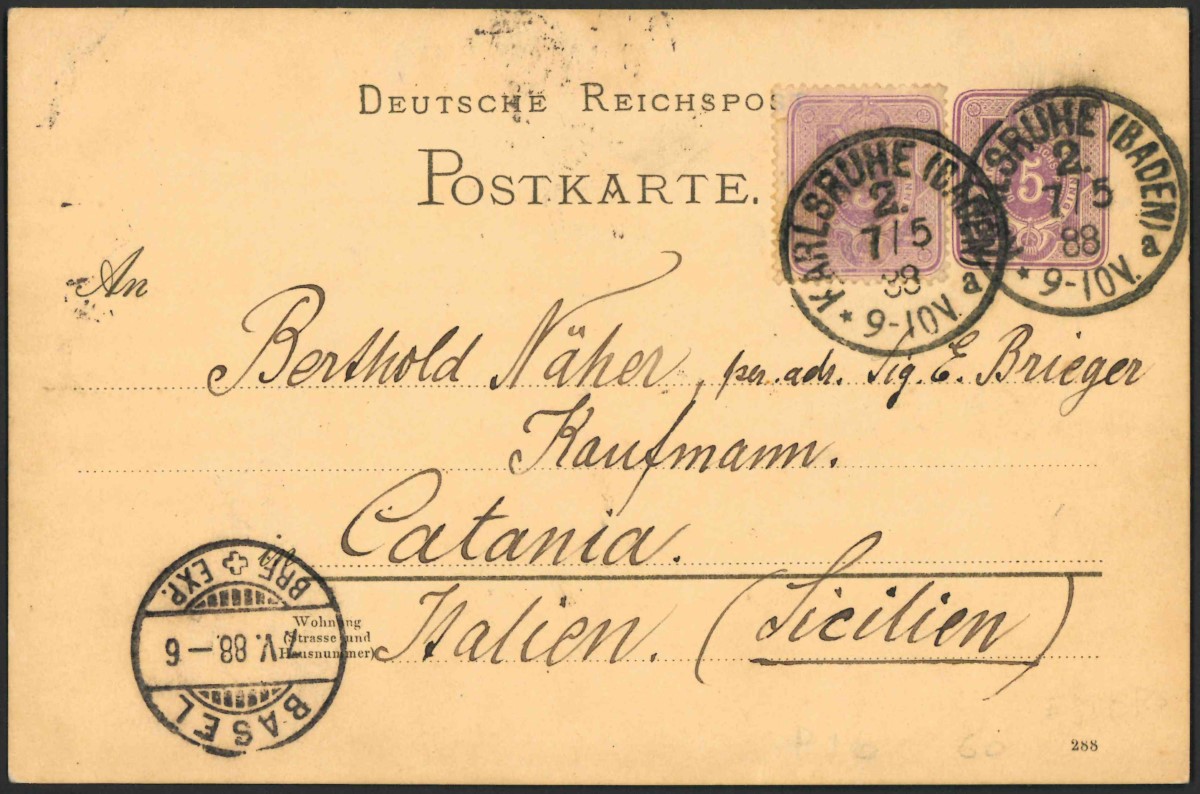 DEUTSCHE REICHSPOS
POSTKARTE.
KARLSRUHE (BADEN)
2.
7/5
88
* 9-10V. a
5
KARLSRUHE (BADEN)
2.
7/5
88
* 9-10V. a
An
Berthold Näher, per. adr. Sig. E. Brieger
Kaufmann.
Catania.
in
Italien. (Sicilien)
Wohnung
(Strasse und
Hausnummer)
BASEL
7.V.88.–6
BRF. EXP.
288